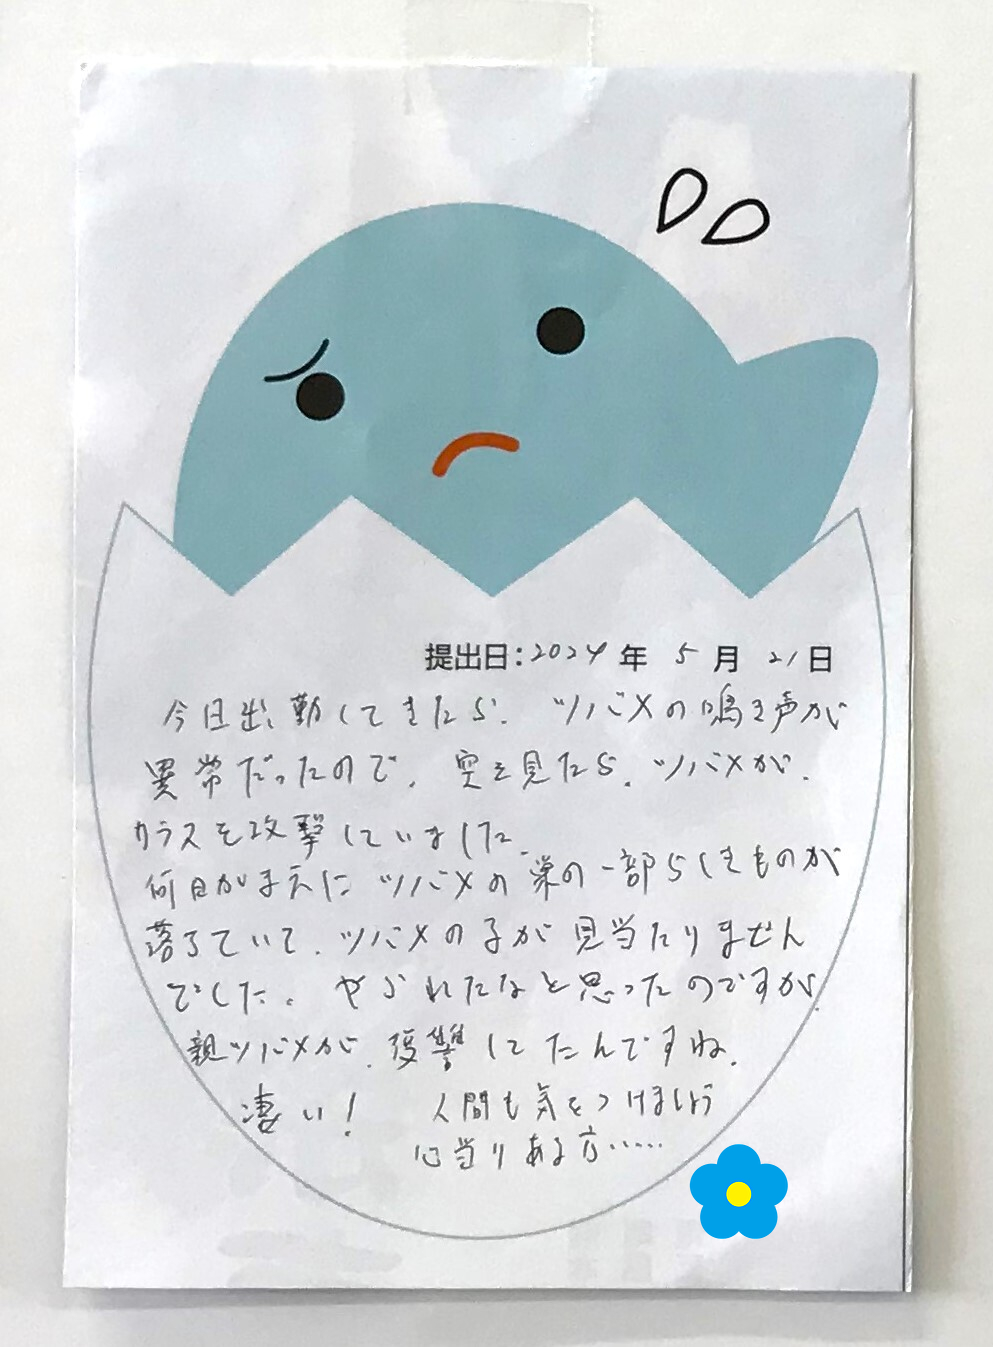 提出日：2024年 5月 21日
今日出勤してきたら、ツバメの鳴き声が
異常だったので、空を見たら、ツバメが、
カラスを攻撃していました。
何日かまえに ツバメの巣の一部らしきものが
落ちていて、ツバメの子が見当たりません
でした。やられたなと思ったのですが、
親ツバメが、復讐してたんですね。
凄い！ 人間も気をつけましょう
心当りある方……